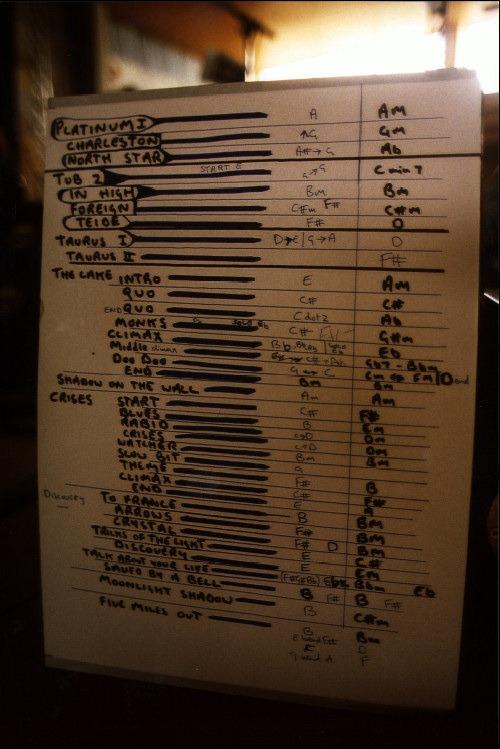 PLATINUM I A Am
CHARLESTON G Gm
NORTH STAR A#→G Ab
TUB 2 START E G↗G Cmin7
IN HIGH Bm Bm
FOREIGN C#m F# C#m
TEIDE F# D
TAURUS I D→E | G→A D
TAURUS II F#
THE LAKE INTRO E Am
QUO C# C#
END QUO C dot 2 Ab
MONKS C# G#m
CLIMAX Bb Eb
Middle
DOO DOO
END G C Cm Em D end
SHADOW ON THE WALL Bm Bm
CRISES START Am Am
BLUES C# F#
RABID B Em
CRISES C→D Dm
WATCHER C→D Dm
SLOW BIT Bm Bm
THEME G
CLIMAX F# B
END C# F#
Discovery TO FRANCE E A
ARROWS B Bm
CRYSTAL F# Bm
TRICKS OF THE LIGHT F# D Bm
DISCOVERY E C#
TALK ABOUT YOUR LIFE E Em
SAVED BY A BELL Bbm Eb
MOONLIGHT SHADOW B F# B F#
FIVE MILES OUT B C#m
B Bm
E D
F